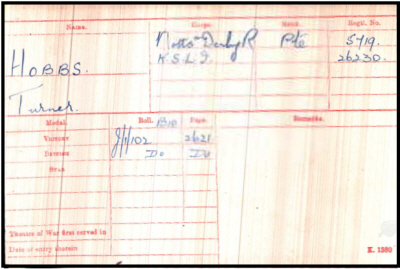 Name. Corps. Rank. Regtl. No.
HOBBS. Notts Derby R Pte 5719.
K.S.L.I. 26230.
Turner.
Medal. Roll. Page. Remarks.
Victory J/1/102 B10 2621
British Do Do
Star
Theatre of War first served in
Date of entry therein
K. 1380